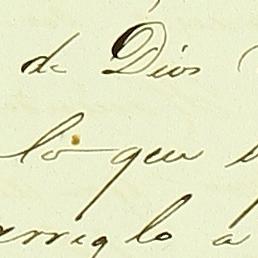 de Dios
lo que
arreglo a